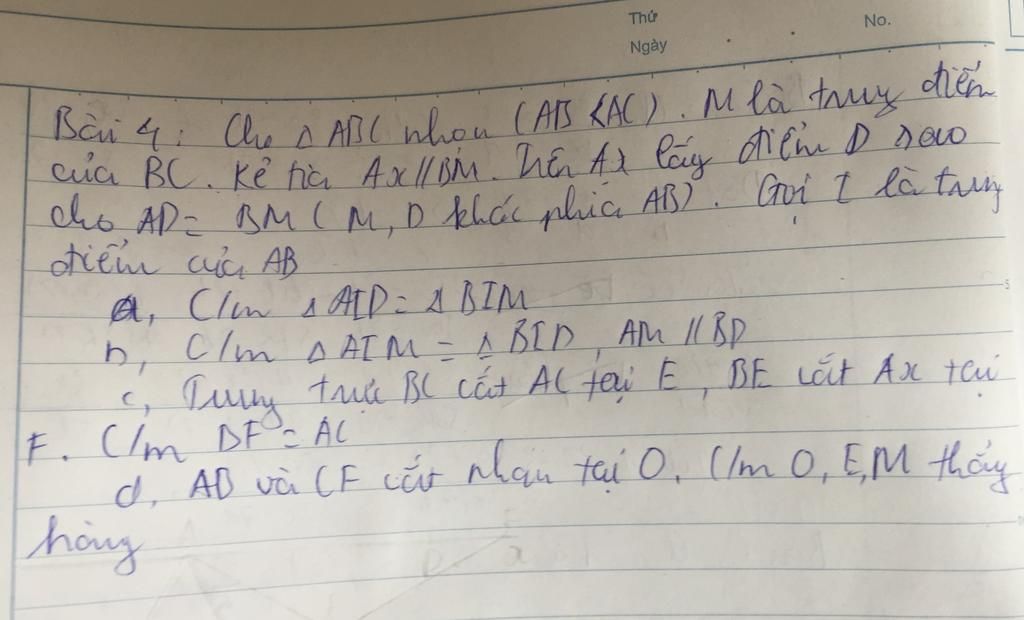 Thứ No.
Ngày
Bài 4: Cho △ ABC nhọn (AB < AC). M là trung điểm
của BC. Kẻ tia Ax // BM. Trên Ax lấy điểm D sao
cho AD = BM (M, D khác phía AB). Gọi I là trung
điểm của AB
a, C/m △ AID = △ BIM
b, C/m △ AIM = △ BID, AM // BD
c, Trung trực BC cắt AC tại E, BE cắt Ax tại
F. C/m BF = AC
d, AB và CF cắt nhau tại O. C/m O, E, M thẳng
hàng